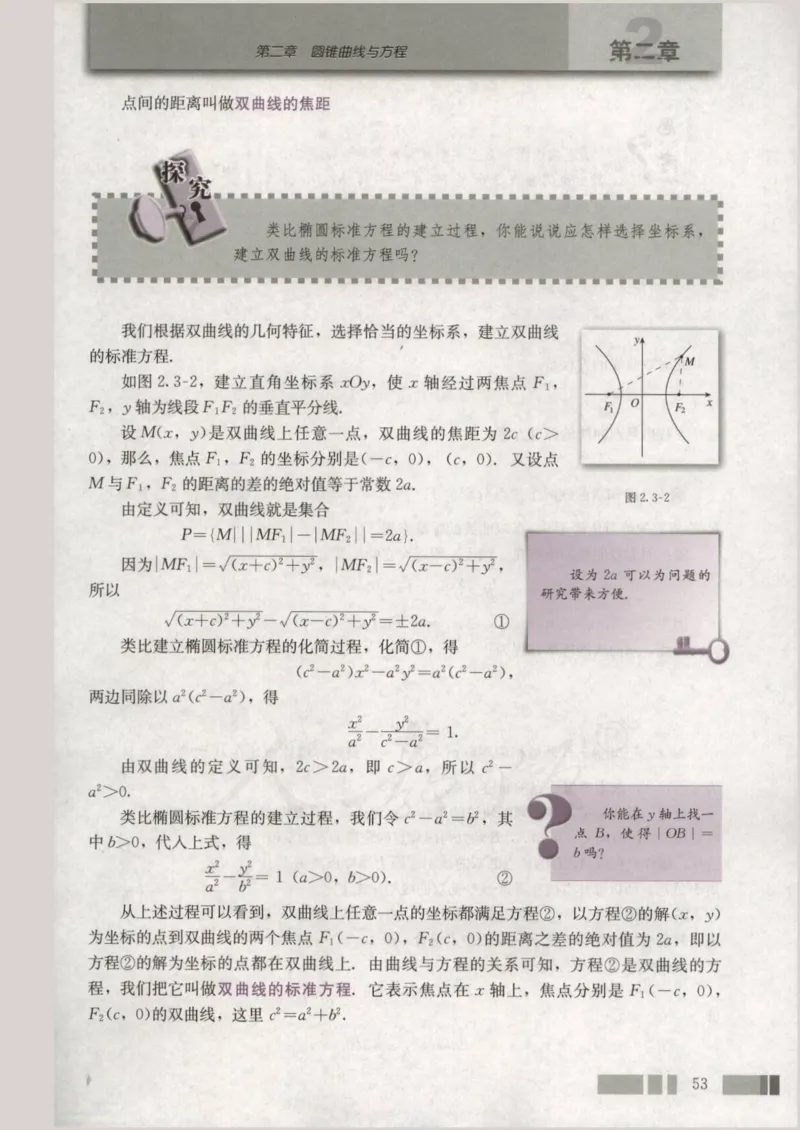 第二章 圆锥曲线与方程
2
第二章
点间的距离叫做双曲线的焦距
探究
类比椭圆标准方程的建立过程，你能说说应怎样选择坐标系，
建立双曲线的标准方程吗？
我们根据双曲线的几何特征，选择恰当的坐标系，建立双曲线
的标准方程.
如图 2.3-2，建立直角坐标系 xOy，使 x 轴经过两焦点 F₁，
F₂，y 轴为线段 F₁F₂ 的垂直平分线.
设 M(x，y)是双曲线上任意一点，双曲线的焦距为 2c（c>
0），那么，焦点 F₁，F₂ 的坐标分别是(−c，0)，(c，0). 又设点
M 与 F₁，F₂ 的距离的差的绝对值等于常数 2a.
y
M
F₁
O
F₂
x
图 2.3-2
由定义可知，双曲线就是集合
P={M| ||MF₁|−|MF₂||=2a}.
因为|MF₁|=√((x+c)²+y²)，|MF₂|=√((x−c)²+y²)，
所以
√((x+c)²+y²)−√((x−c)²+y²)=±2a. ①
设为 2a 可以为问题的
研究带来方便.
类比建立椭圆标准方程的化简过程，化简①，得
(c²−a²)x²−a²y²=a²(c²−a²)，
两边同除以 a²(c²−a²)，得
x²/a²−y²/(c²−a²)=1.
由双曲线的定义可知，2c>2a，即 c>a，所以 c²−
a²>0.
类比椭圆标准方程的建立过程，我们令 c²−a²=b²，其
中 b>0，代入上式，得
x²/a²−y²/b²=1 (a>0，b>0). ②
?
你能在 y 轴上找一
点 B，使得|OB|=
b 吗？
从上述过程可以看到，双曲线上任意一点的坐标都满足方程②，以方程②的解(x，y)
为坐标的点到双曲线的两个焦点 F₁(−c，0)，F₂(c，0)的距离之差的绝对值为 2a，即以
方程②的解为坐标的点都在双曲线上. 由曲线与方程的关系可知，方程②是双曲线的方
程，我们把它叫做双曲线的标准方程. 它表示焦点在 x 轴上，焦点分别是 F₁(−c，0)，
F₂(c，0)的双曲线，这里 c²=a²+b².
53